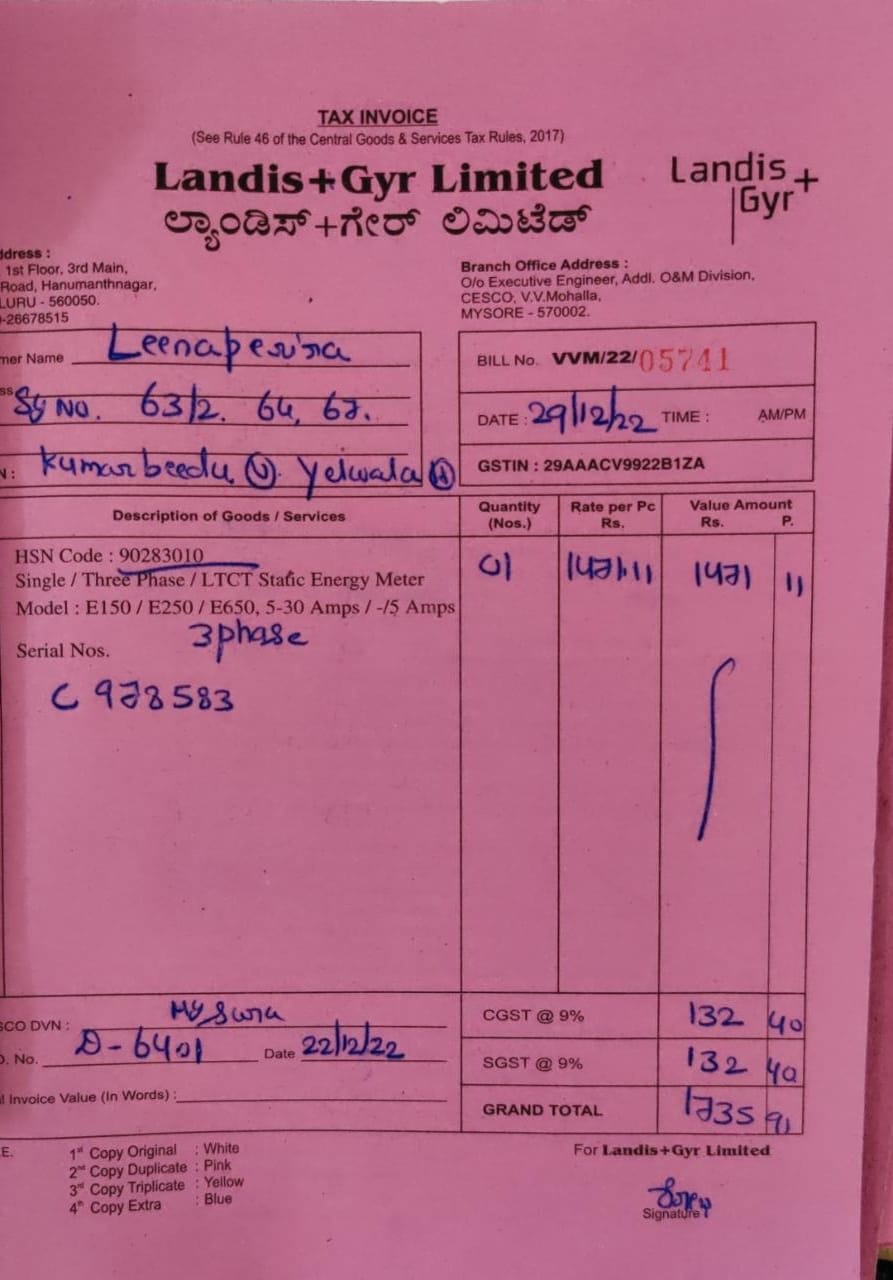 TAX INVOICE
(See Rule 46 of the Central Goods & Services Tax Rules, 2017)
Landis+Gyr Limited
ಲ್ಯಾಂಡಿಸ್+ಗೇರ್ ಲಿಮಿಟೆಡ್
Landis+
Gyr
ddress :
1st Floor, 3rd Main,
Road, Hanumanthnagar,
LURU - 560050.
-26678515
Branch Office Address :
O/o Executive Engineer, Addl. O&M Division,
CESCO, V.V.Mohalla,
MYSORE - 570002.
mer Name Leenaperira
ss Sy No. 63/2. 64, 67.
N : Kumarbeedu (V). Yelwala (H)
BILL No. VVM/22/05741
DATE : 29/12/22 TIME : AM/PM
GSTIN : 29AAACV9922B1ZA
Description of Goods / Services Quantity (Nos.) Rate per Pc Rs. Value Amount Rs. P.
HSN Code : 90283010 01 1471.11 1471 11
Single / Three Phase / LTCT Static Energy Meter
Model : E150 / E250 / E650, 5-30 Amps / -/5 Amps
3 phase
Serial Nos.
C 978583
SCO DVN : Mysuru
O. No. D-6401 Date 22/12/22
l Invoice Value (In Words) :
CGST @ 9% 132 40
SGST @ 9% 132 40
GRAND TOTAL 1735 91
E. 1st Copy Original : White
2nd Copy Duplicate : Pink
3rd Copy Triplicate : Yellow
4th Copy Extra : Blue
For Landis+Gyr Limited
Signature